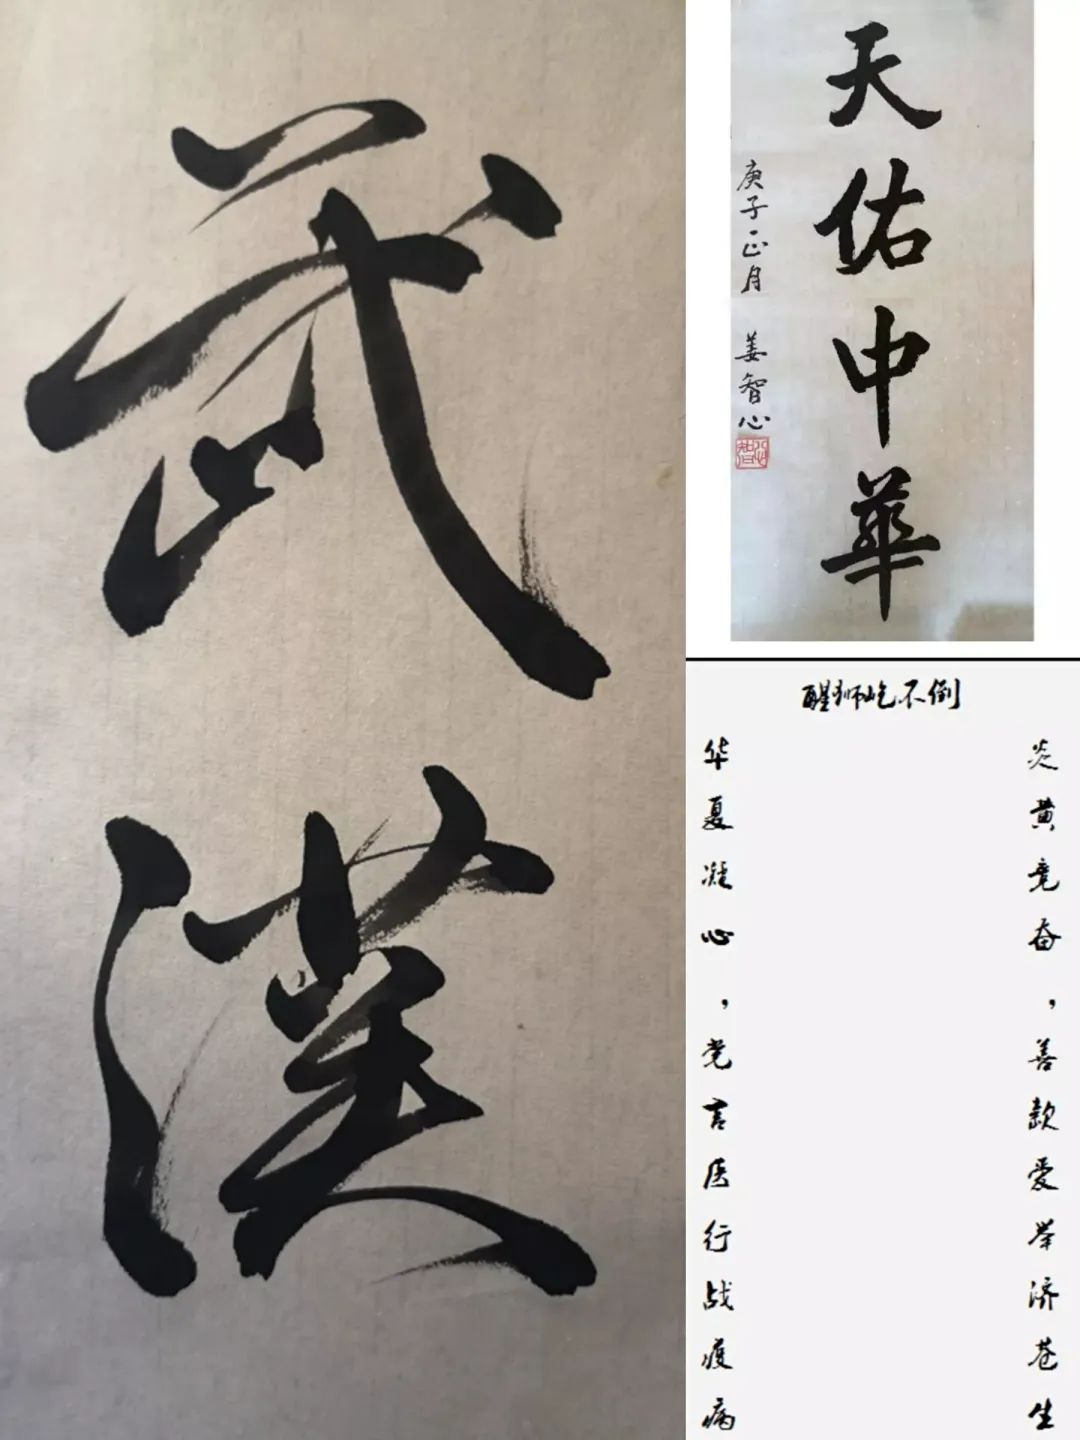 武漢
天佑中華
庚子正月 姜智心
醒狮屹不倒
炎黄竞奋，善款爱举济苍生
华夏凝心，党言医行战疫病